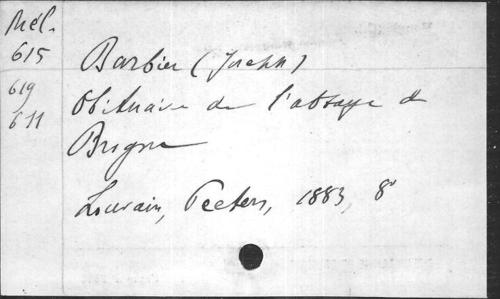 Mél.
615
Barbier (Joseph)
619
Obituaire de l'abbaye de
611
Brogne
Louvain, Peeters, 1883, 8°